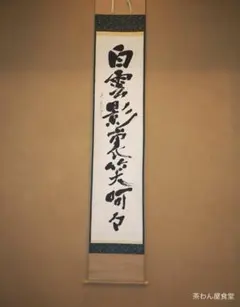 白雲影裏笑呵々
茶わん屋食堂